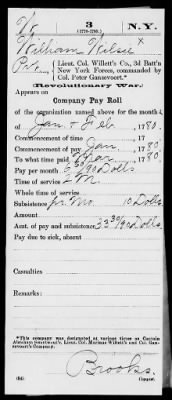 W
3
N.Y.
(1778-1780.)
William Wilsie x
Pvt., Lieut. Col. Willett's Co., 3d Batt'n
New York Forces, commanded by
Col. Peter Gansevoort.*
Revolutionary War.
Appears on
Company Pay Roll
of the organization named above for the month
of Jan. & Feb., 1780.
Commencement of time , 17
Commencement of pay Jan , 1780.
To what time paid Mar , 1780.
Pay per month 6 60/90 Dolls
Time of service 2 M.
Whole time of service
Subsistence pr. Mo. 10 Dolls
Amount
Amt. of pay and subsistence 33 30/90 Dolls.
Pay due to sick, absent
Casualties
Remarks:
*This company was designated at various times as Captain
Lieut. Col. Marinus Willett's and Col. Gansevoort's Company.
Brooks.
Copyist.